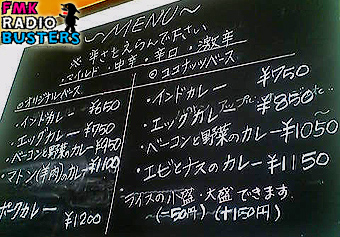 FMK
RADIO
BUSTERS
～MENU～
※ 辛さをえらんで下さい
マイルド・中辛・辛口・激辛
◎オリジナルベース
・インドカレー ¥650
・エッグカレー ¥750
・ベーコンと野菜のカレー ¥950
・マトン(羊肉)のカレー ¥1100
ポークカレー ¥1200
◎ココナッツベース
・インドカレー ¥750
・エッグカレー ¥850
・ベーコンと野菜のカレー ¥1050
・エビとナスのカレー ¥1150
・ライスの小盛・大盛できます
(-50円) (+150円)